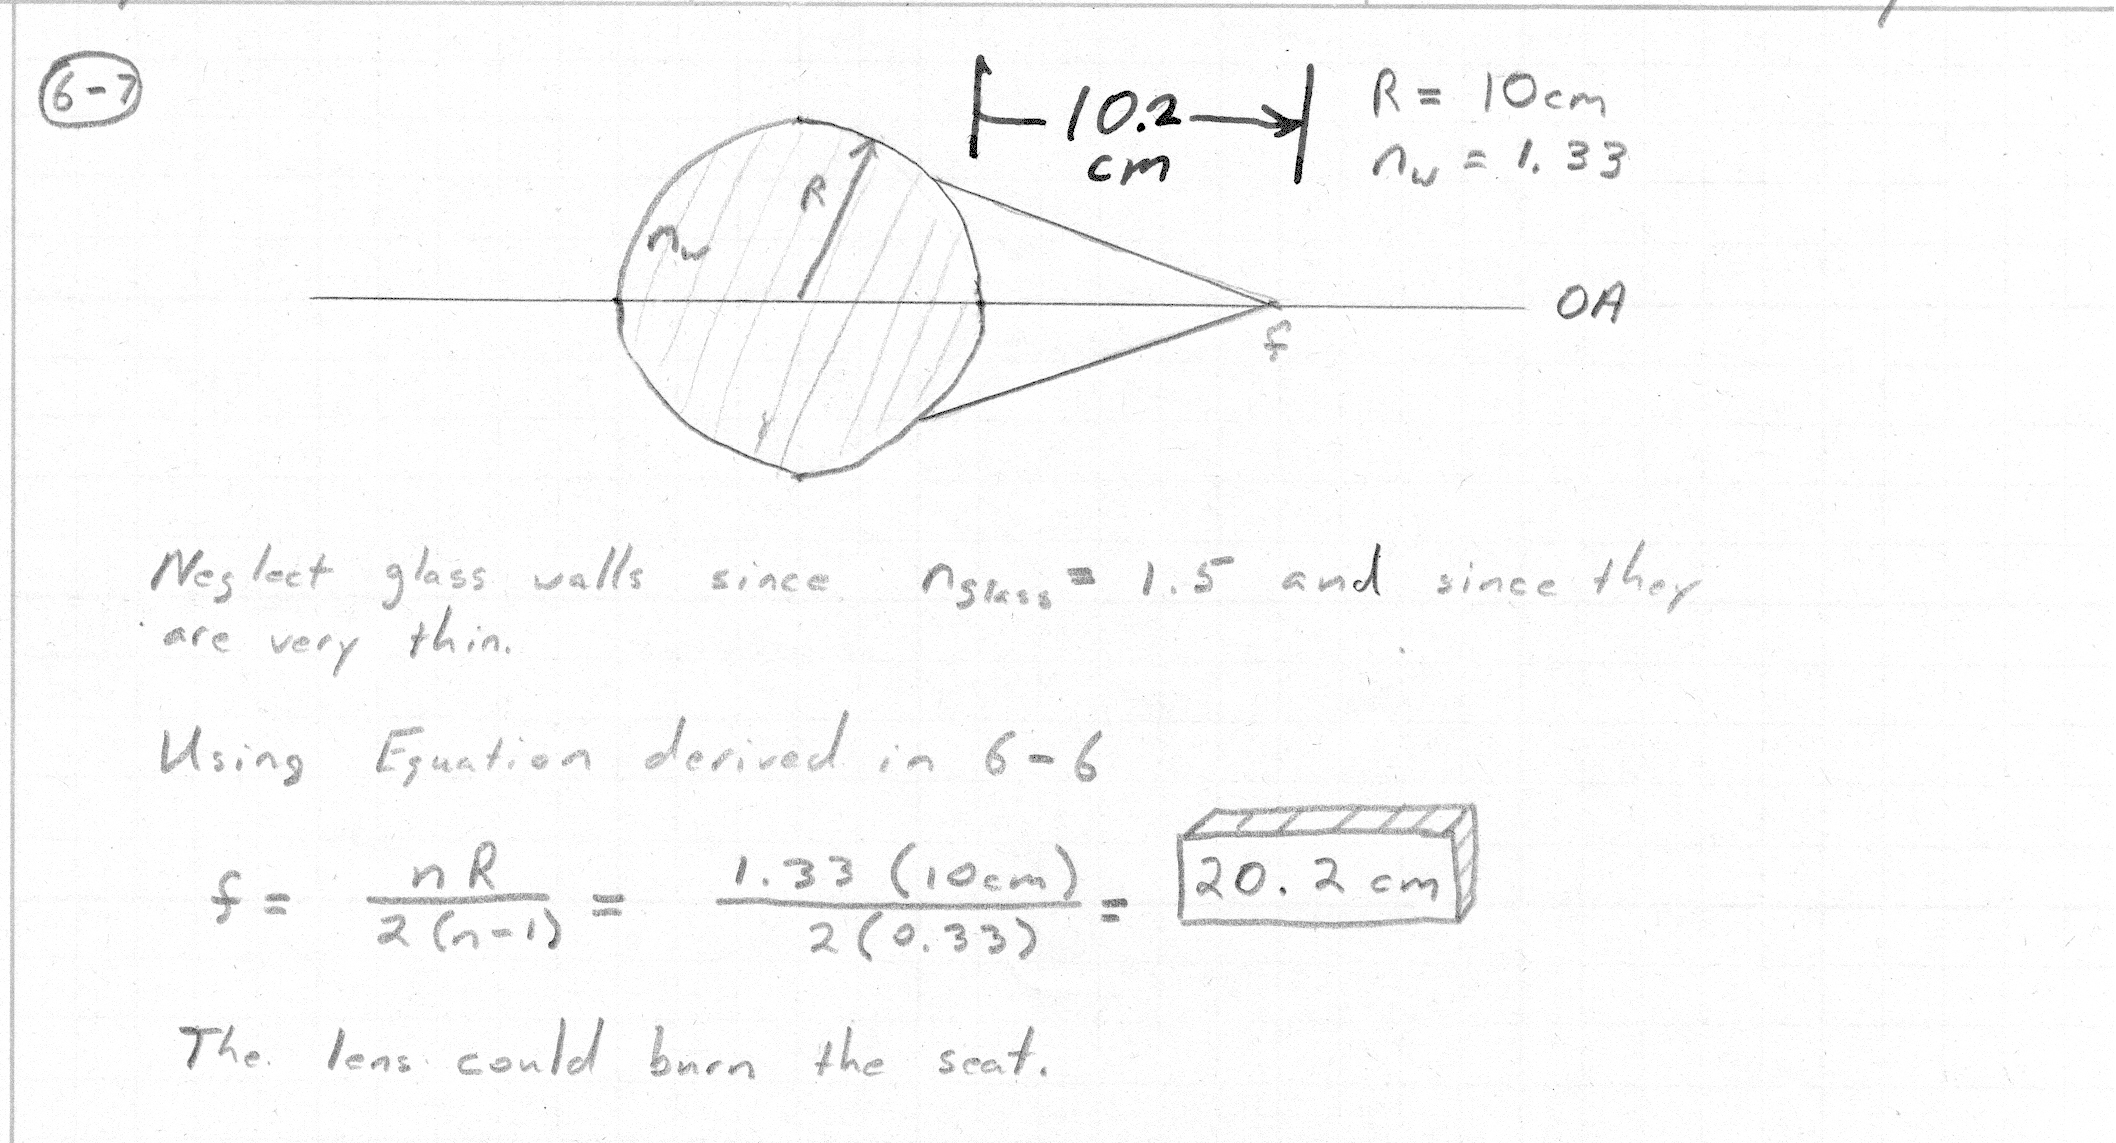 6-7
10.2
cm
R = 10cm
n_w = 1.33
R
n_w
OA
f
Neglect glass walls since n_glass = 1.5 and since they
are very thin.
Using Equation derived in 6-6
f = nR / 2(n-1) = 1.33 (10cm) / 2(0.33) = 20.2 cm
The lens could burn the seat.